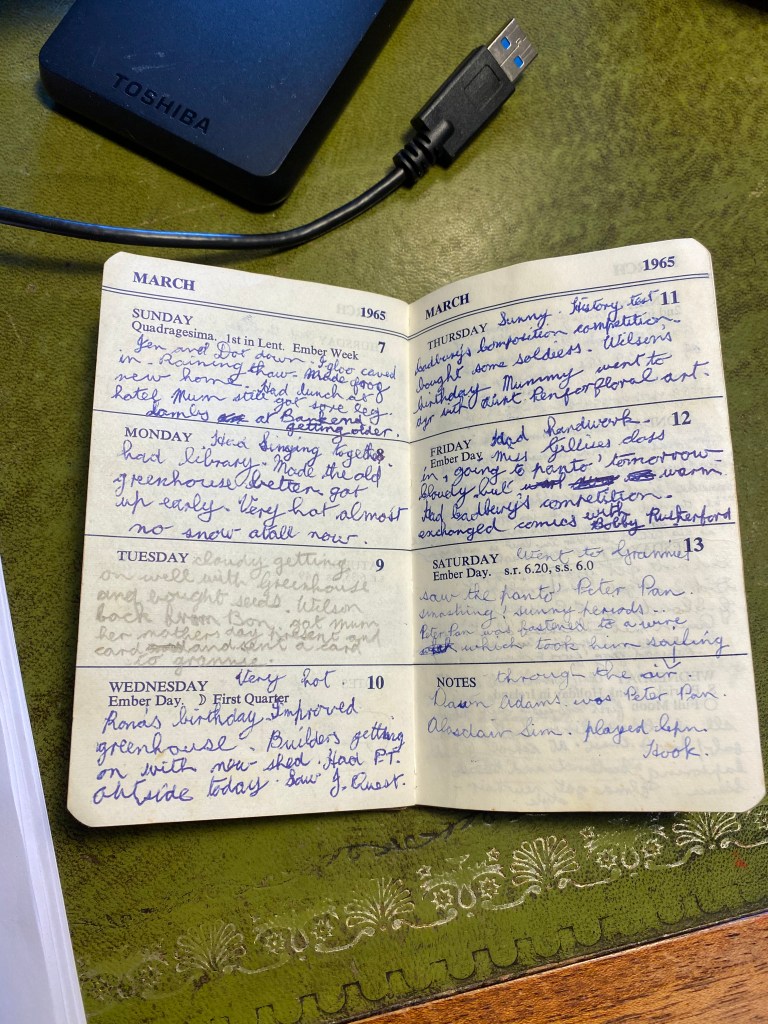 TOSHIBA
MARCH
1965
SUNDAY
7
Quadragesima. 1st in Lent. Ember Week
Jen and Dot down. Igloo caved
in. Raining thaw. Made
new home. Had lunch at
hotel Mum still got sore leg.
lambs at
getting older.
MONDAY
8
Had Singing together
had library. Made the old
greenhouse better. got
up early. Very hot almost
no snow atall now.
TUESDAY
9
cloudy getting
on well with greenhouse
and bought seeds. Wilson
back from Bon. got mum
her mothers day present and
card and sent a card
to grannie.
WEDNESDAY
10
Very hot
Ember Day. ☽ First Quarter
Rona's birthday. Improved
greenhouse. Builders getting
on with new shed. Had P.T.
outside today. Saw J. Quest.
MARCH
1965
THURSDAY
11
Sunny. History test
Cadbury's composition competition.
bought some soldiers. Wilson's
birthday Mummy went to
ayr with aunt Ren for floral art.
FRIDAY
12
Had handwork.
Ember Day.
Miss Gillies class
in, going to panto' tomorrow
cloudy but warm
Had Cadbury's competition.
exchanged comics with
Bobby Rutherford
SATURDAY
13
Went to Grannies
Ember Day. s.r. 6.20, s.s. 6.0
saw the panto' Peter Pan.
smashing! sunny periods...
Peter Pan was fastened to a wire
which took him sailing
NOTES
through the air.
Dawn Adams. was Peter Pan.
Alasdair Sim. played Cpn.
Hook.